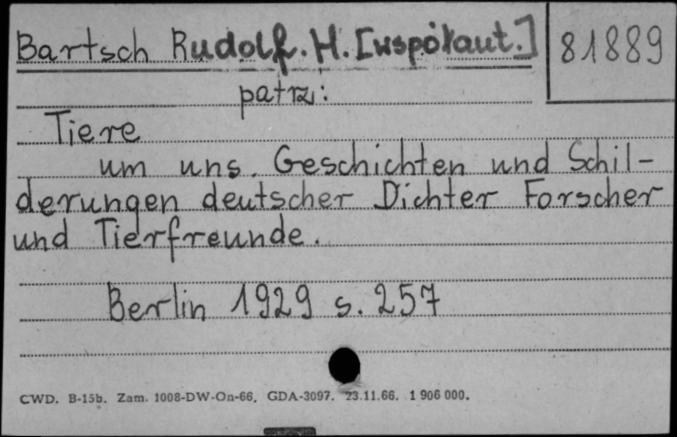 Bartsch Rudolf. H. [współaut.]
81889
patrz:
Tiere
um uns. Geschichten und Schil-
derungen deutscher Dichter Forscher
und Tierfreunde.
Berlin 1929 s. 257
CWD. B-15b. Zam. 1008-DW-On-66. GDA-3097. 23.11.66. 1 906 000.